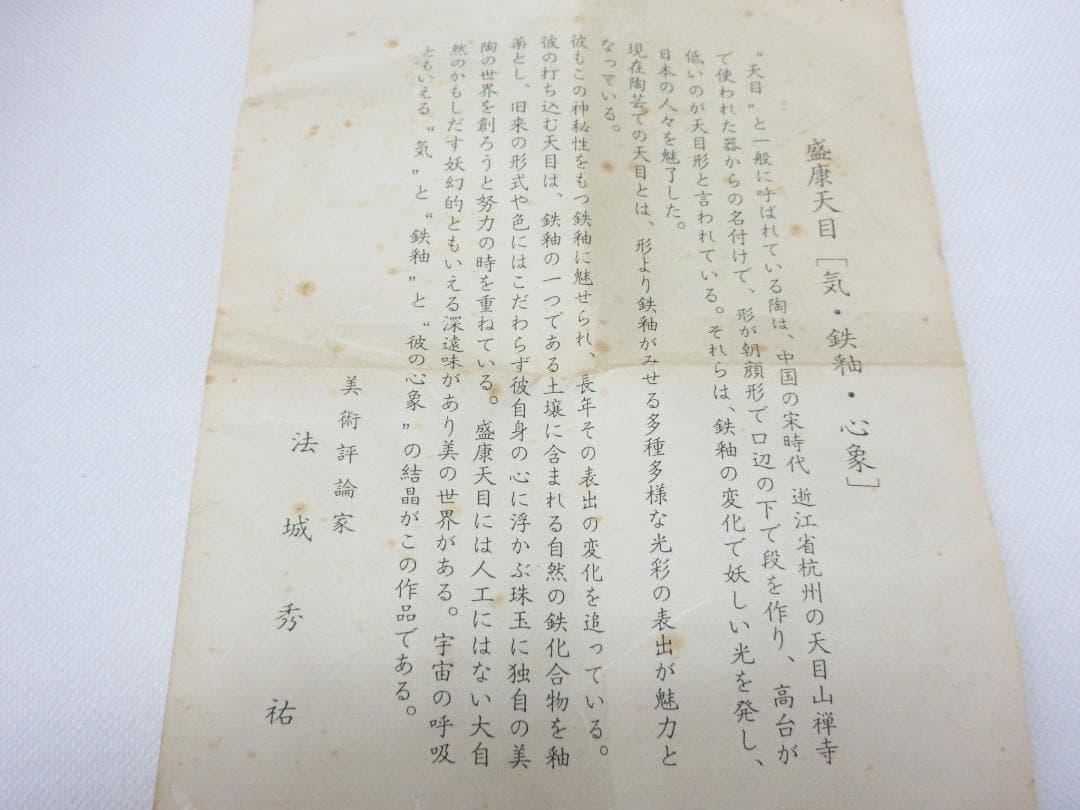 盛康天目［気・鉄釉・心象］
“天目”と一般に呼ばれている陶は、中国の宋時代 逝江省杭州の天目山禅寺
で使われた器からの名付けで、形が朝顔形で口辺の下で段を作り、高台が
低いのが天目形と言われている。それらは、鉄釉の変化で妖しい光を発し、
日本の人々を魅了した。
現在陶芸での天目とは、形より鉄釉がみせる多種多様な光彩の表出が魅力と
なっている。
彼もこの神秘性をもつ鉄釉に魅せられ、長年その表出の変化を追っている。
彼の打ち込む天目は、鉄釉の一つである土壌に含まれる自然の鉄化合物を釉
薬とし、旧来の形式や色にはこだわらず彼自身の心に浮かぶ珠玉に独自の美
陶の世界を創ろうと努力の時を重ねている。盛康天目には人工にはない大自
然のかもしだす妖幻的ともいえる深遠味があり美の世界がある。宇宙の呼吸
ともいえる“気”と“鉄釉”と“彼の心象”の結晶がこの作品である。
美術評論家
法城秀祐